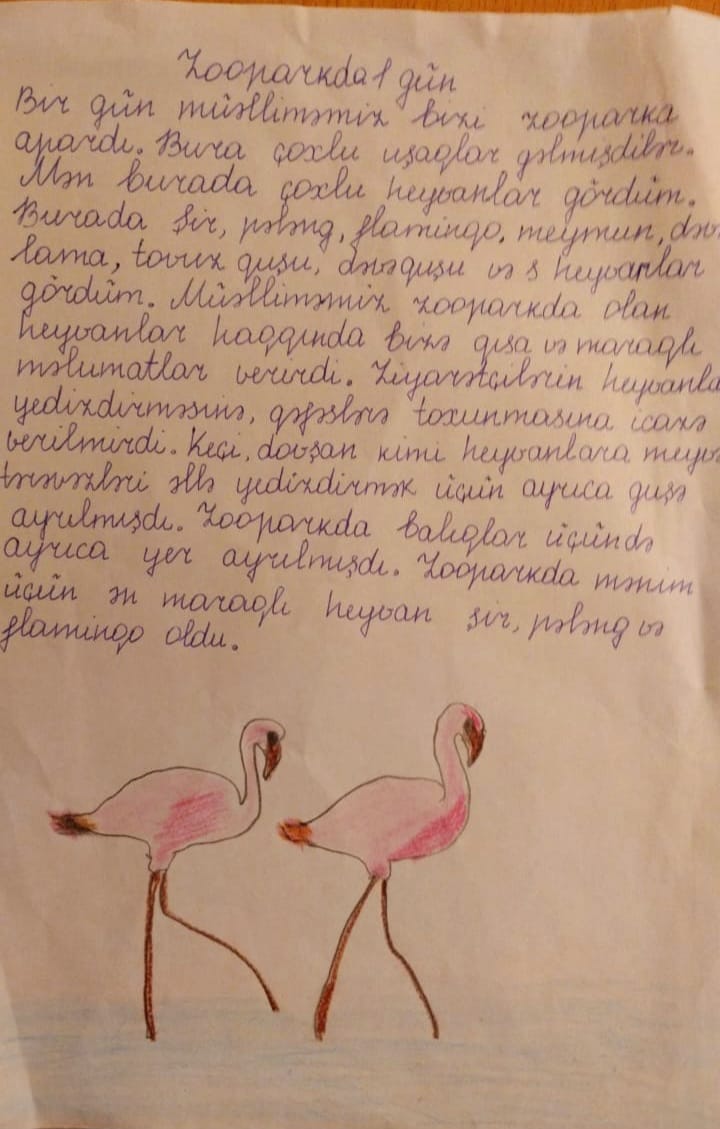 Zooparkda 1 gün
Bir gün müəlliməmiz bizi zooparka
apardı. Bura çoxlu uşaqlar gəlmişdilər.
Mən burada çoxlu heyvanlar gördüm.
Burada şir, pələng, flamingo, meymun, də
lama, tovuz quşu, dəvəquşu və s heyvanlar
gördüm. Müəlliməmiz zooparkda olan
heyvanlar haqqında bizə qısa və maraqlı
məlumatlar verirdi. Ziyarətçilərin heyvanla
yedizdirməsinə, qəfəslərə toxunmasına icazə
verilmirdi. Keçi, dovşan kimi heyvanlara meyv
tərəvəzləri əllə yedizdirmək üçün ayrıca guşə
ayrılmışdı. Zooparkda balıqlar üçündə
ayrıca yer ayrılmışdı. Zooparkda mənim
üçün ən maraqlı heyvan şir, pələng və
flamingo oldu.